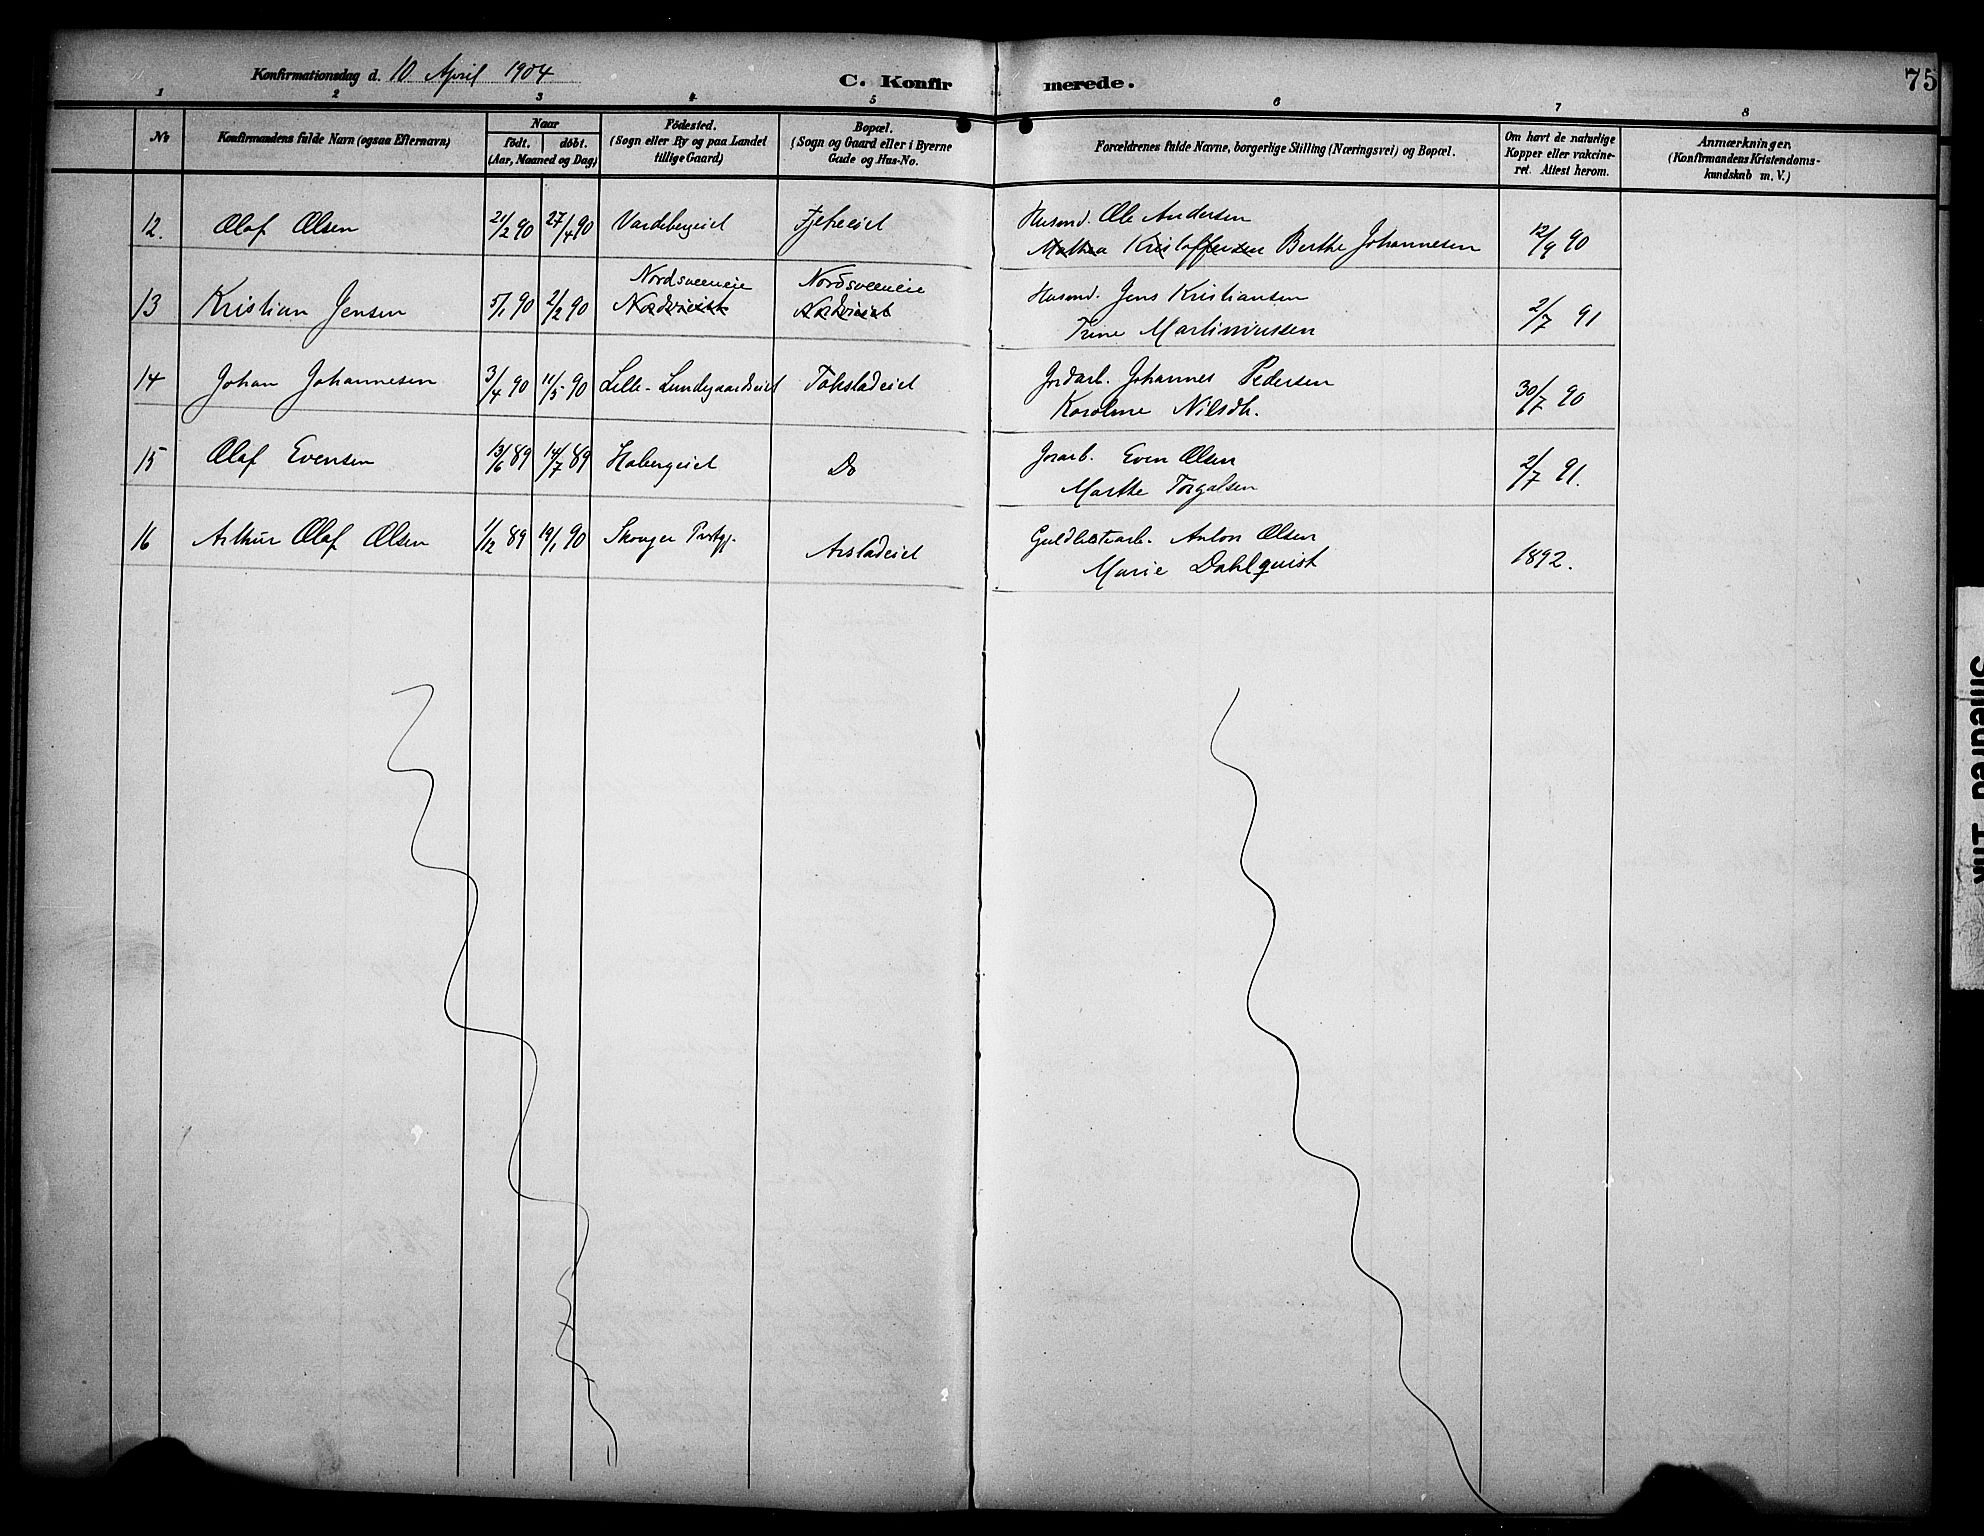 Konfirmationsdag d. 10 April 1904
C. Konfirmerede.
75
1 2 3 4 5 6 7 8
No
Konfirmandens fulde Navn (ogsaa Efternavn)
Naar
födt. döbt.
(Aar, Maaned og Dag)
Födested.
(Sogn eller By og paa Landet
tillige Gaard)
Bopæl.
(Sogn og Gaard eller i Byerne
Gade og Hus-No.
Forældrenes fulde Navne, borgerlige Stilling (Næringsvei) og Bopæl.
Om havt de naturlige
Kopper eller vakcine-
ret. Attest herom.
Anmærkninger.
(Konfirmandens Kristendoms-
kundskab m. V.)
12. Olaf Olsen 21/2 90 27/4 90 Vardebergeiet Husmd. Ole Andersen
Mathea Kristoffersen Berthe Johannesen 12/9 90
Nordsveeneie Nordsveeneie
13 Kristian Jensen 5/1 90 2/2 90 Husmd. Jens Kristiansen
Trine Martiniussen 2/7 91
14 Johan Johannesen 3/4 90 11/5 90 Lille-Lundgaardseiet Tokstadeiet Jordarb. Johannes Pedersen
Karoline Nilsdt. 30/7 90
15 Olaf Evensen 13/6 89 14/7 89 Habergeiet Do Jorarb. Even Olsen
Marthe Torgalsen 2/7 91.
16 Arthur Olaf Olsen 1/12 89 19/1 90 Skoger Prstgj. Arstadeiet Guldlistearb. Anton Olsen
Marie Dahlquist 1892.